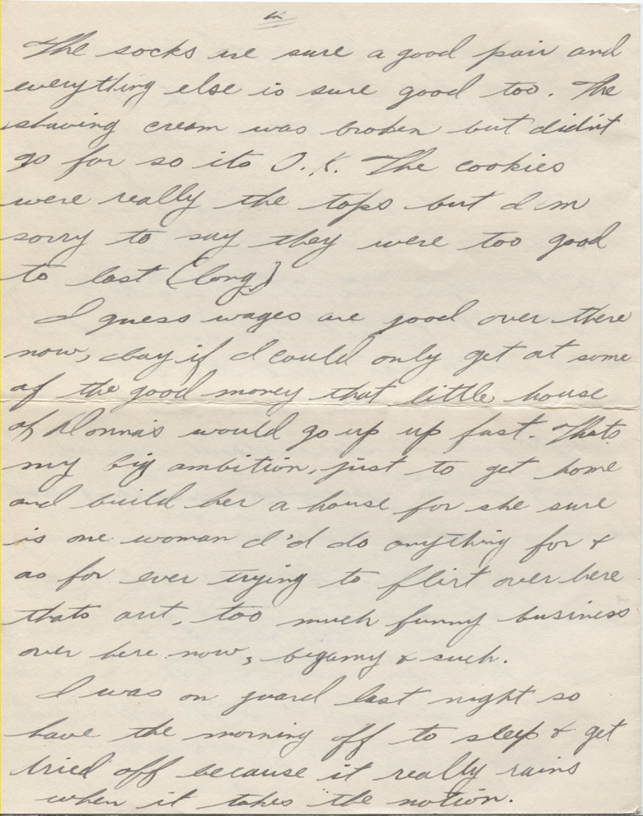 The socks are sure a good pair and
everything else is sure good too. The
shaving cream was broken but didn't
go far so its O.K. The cookies
were really the tops but I'm
sorry to say they were too good
to last (long)
I guess wages are good over there
now, boy if I could only get at some
of the good money that little house
of Donna's would go up up fast. Thats
my big ambition, just to get home
and build her a house for she sure
is one woman I'd do anything for &
as for ever trying to flirt over here
thats out, too much funny business
over here now, bigamy & such.
I was on guard last night so
have the morning off to sleep & get
dried off because it really rains
when it takes the notion.